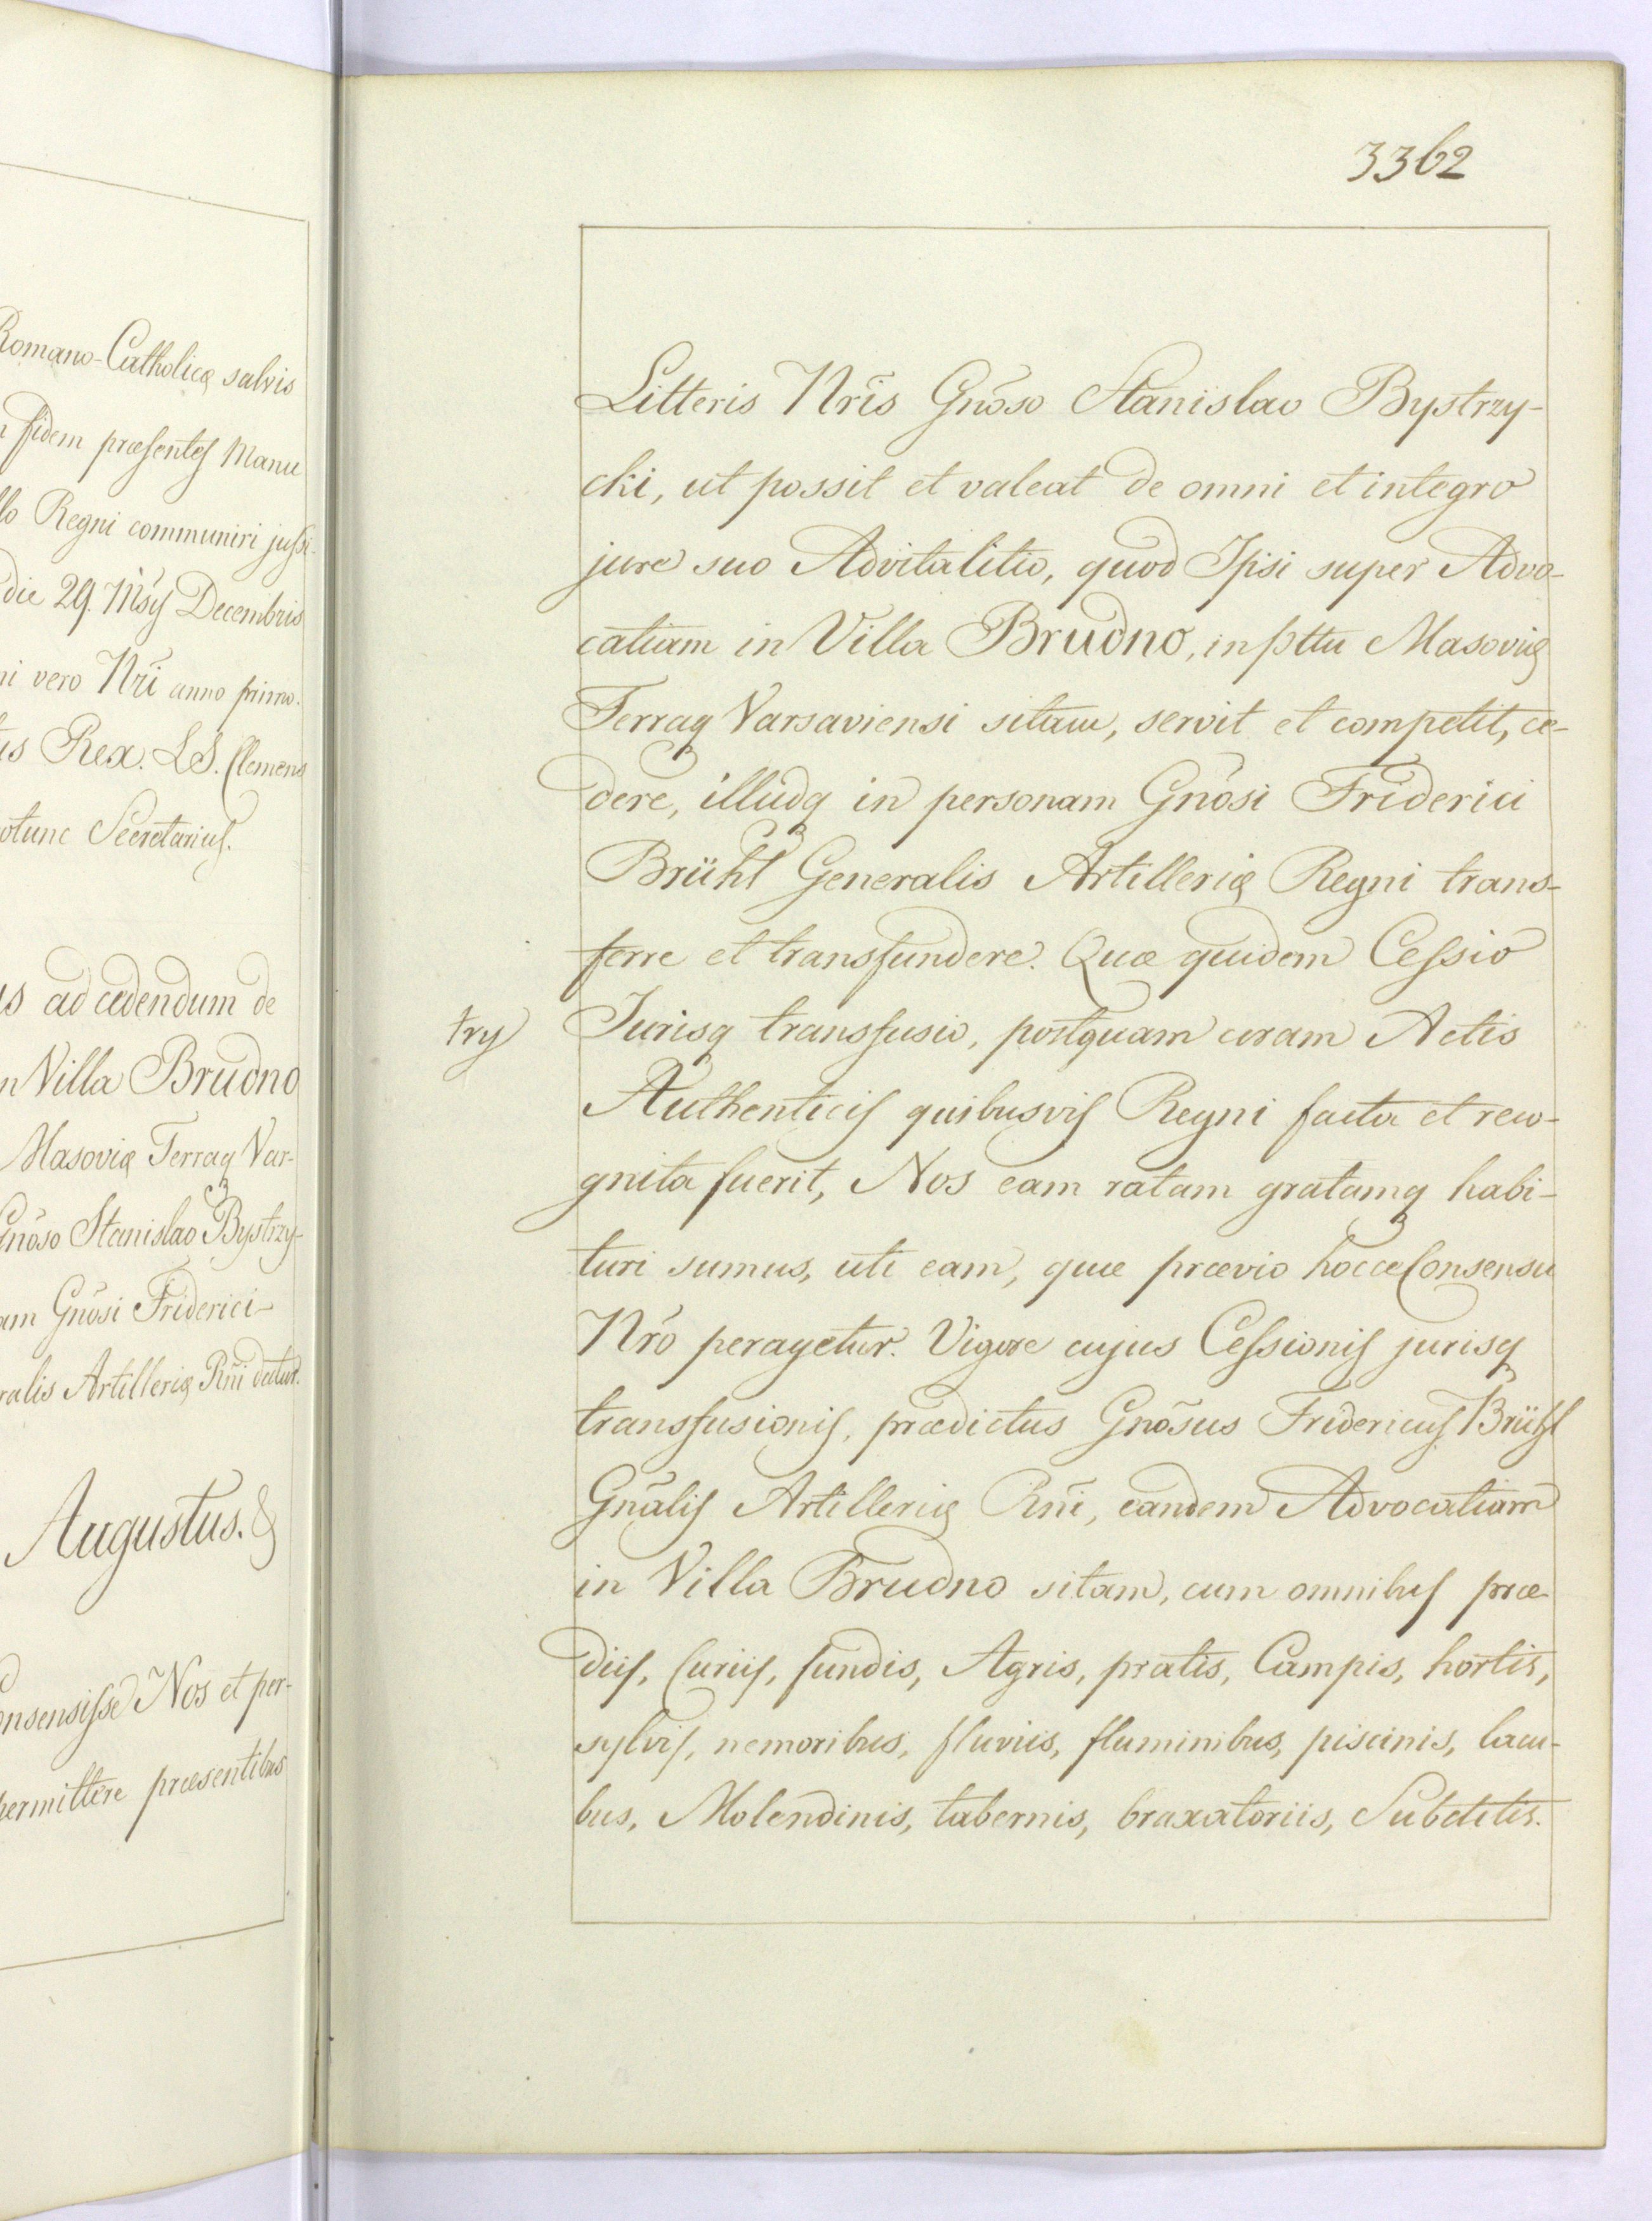 Romano-Catholicę salvis
fidem præsentes Manu
Regni communiri jussi-
die 29. Mśis Decembris
vero Nrĩ anno primo.
Rex. LS. Clemens
Secretarius.
ad cedendum de
Villa Brudno
Masovię Terraq Var-
Gnõso Stanislao Bystrzy-
Gnõsi Friderici
Artillerię Rñi datur.
Augustus. &
Nos et per-
permittere præsentibus
3362
Litteris Nrĩs Gnõso Stanislao Bystrzy-
cki, ut possit et valeat de omni et integro
jure suo Advitalitio, quod Ipsi super Advo-
catiam in Villa Brudno, in pttu Masovię
Terraq Varsaviensi sitam, servit et competit, ce-
dere, illudq in personam Gnõsi Friderici
Brühl Generalis Artillerię Regni trans-
ferre et transfundere. Quæ quidem Cessio
try Jurisq transfusio, postquam coram Actis
Authenticis quibusvis Regni facta et reco-
gnita fuerit, Nos eam ratam gratamq habi-
turi sumus, uti eam, quæ prævio hocce Consensu
Nrõ peragetur. Vigore cujus Cessionis jurisq
transfusionis, prædictus Gnõsus Fridericus Brühl
Gnãlis Artillerię Rñi, eandem Advocatiam
in Villa Brudno sitam, cum omnibus præ-
diis, Curiis, fundis, Agris, pratis, Campis, hortis,
sylvis, nemoribus, fluviis, fluminibus, piscinis, lacu-
bus, Molendinis, tabernis, braxatoriis, Subditis.